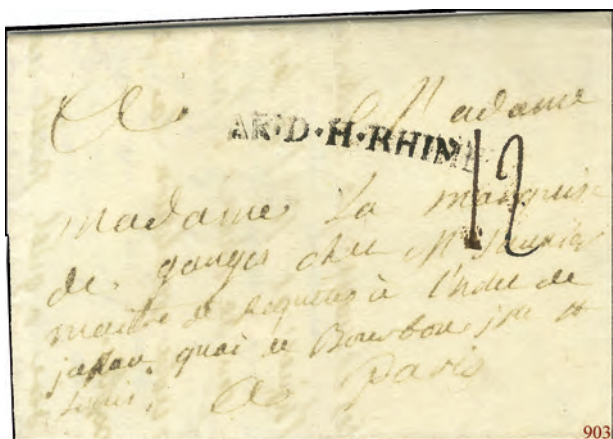 A Madame
AR·D·H·RHIN
12
Madame La marquise
de ganges chez Mr
maitre de requetes à l'hotel de
quai de Bourbon isle st
Louis. A Paris
903